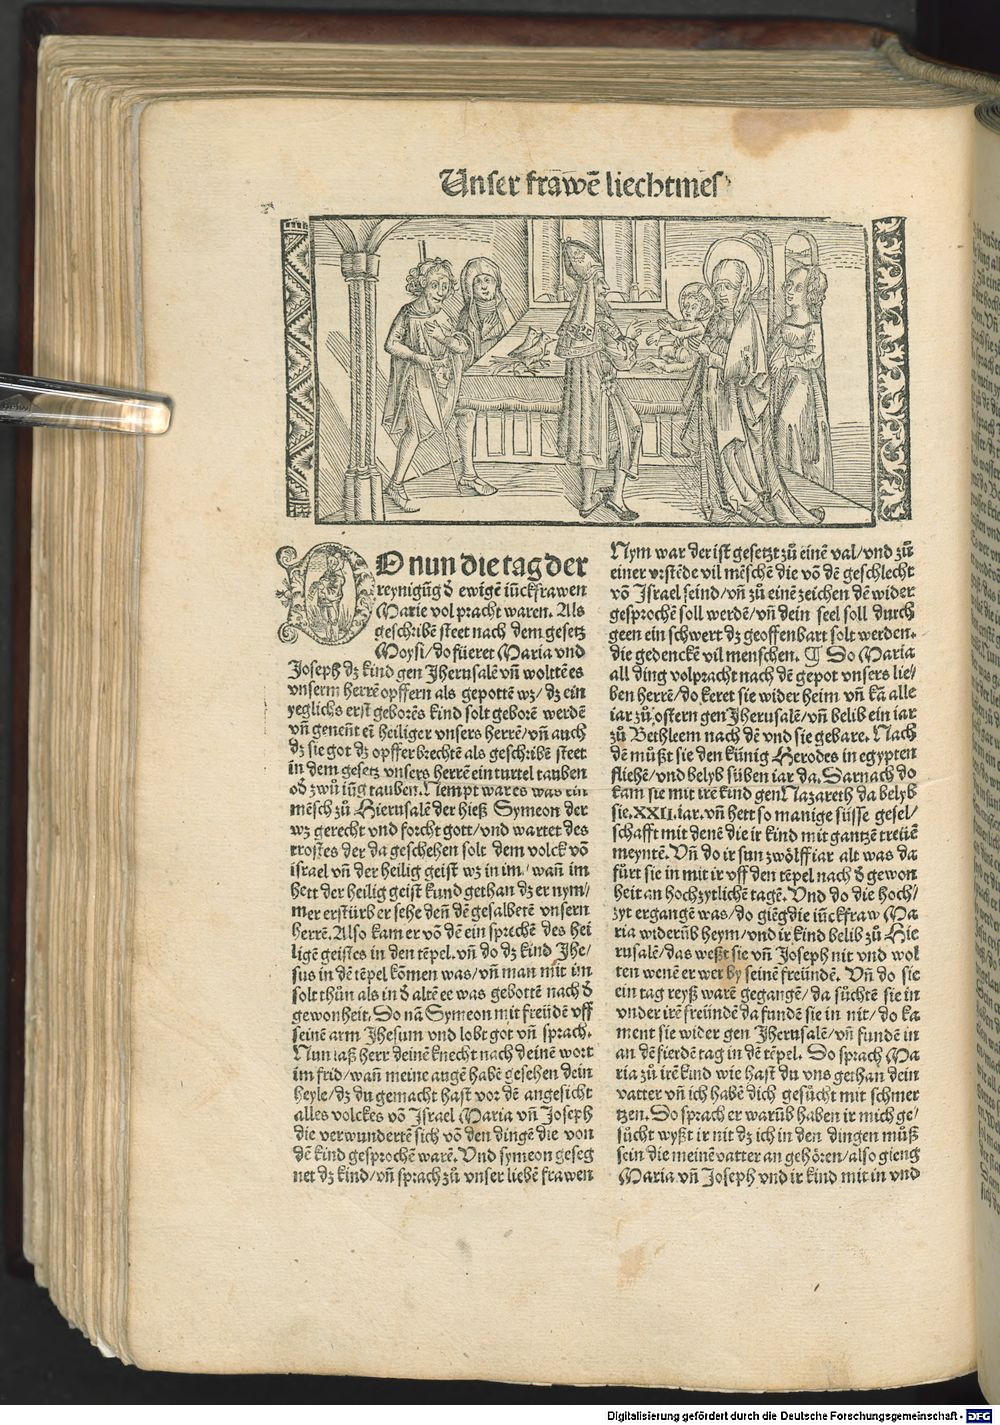 Unser frawē liechtmes
DO nun die tag der
reynigūg d̄ ewigē iūckfrawen
Marie vol pracht waren. Als
geschribē steet nach dem gesetz
Moysi/ do füeret Maria vnd
Joseph dz kind gen Jherusalē vn̄ woltē es
vnserm herrē opffern als gepottē wz/ dz ein
yeglichs erst geborēs kind solt geborē werdē
vn̄ genent ei heiliger vnsers herrē/ vn̄ auch
dz sie got dz opffer brechtē als geschribē steet
in dem gesetz vnsers herrē ein turtel tauben
od̄ zwū iūg tauben. Nempt war es was ein
mēsch zů Hierusalē der hieß Symeon der
wz gerecht vnd forcht gott/ vnd wartet des
trostes der da geschehen solt dem volck vō
israel vn̄ der heilig geist wz in im/ wan̄ im
hett der heilig geist kund gethan dz er nym/
mer erstürb er sehe den̄ dē gesalbetē vnsern
herrē. Also kam er vō dē ein sprechē des hei
ligē geistes in den tēpel. vn̄ do dz kind Jhe/
sus in dē tēpel kōmen was/ vn̄ man mit im
solt thůn als in d̄ altē ee was gebottē nach d̄
gewonheit. So nā Symeon mit freüdē vff
seinē arm Jhesum vnd lobt got vn̄ sprach.
Nun laß herr deinē knecht nach deinē wort
im frid/ wan̄ meine augē habē gesehen dein
heyle/ dz du gemacht hast vor dē angesicht
alles volckes vō Israel Maria vn̄ Joseph
die verwundertē sich vō den dingē die von
dē kind gesprochē warē. Vnd symeon geseg
net dz kind/ vn̄ sprach zů vnser liebē frawen
Nym war der ist gesetzt zů einē val/ vnd zů
einer vrstēde vil mēschē die vō dē geschlecht
vō Israel seind/ vn̄ zů einē zeichen dē wider
gesprochē soll werdē/ vn̄ dein seel soll durch
geen ein schwert dz geoffenbart solt werden.
die gedenckē vil menschen. ¶ So Maria
all ding volpracht nach dē gepot vnsers lie/
ben herrē/ do keret sie wider heim vn̄ kā alle
iar zů ostern gen Jherusalē/ vn̄ belib ein iar
zů Bethleem nach dē vnd sie gebare. Nach
dē můßt sie den künig Herodes in egypten
fliehē/ vnd belyb süben iar da. Darnach do
kam sie mit irē kind gen Nazareth da belyb
sie. XXII. iar. vn̄ hett so manige süsse gesel/
schafft mit denē die ir kind mit gantzē treüē
meyntē. Vn̄ do ir sun zwölff iar alt was da
fürt sie in mit ir vff den tēpel nach d̄ gewon
heit an hochzytlichē tagē. Vnd do die hoch/
zyt ergangē was/ do giēg die iūckfraw Ma
ria widerūb heym/ vnd ir kind belib zů Hie
rusalē/ das weßt sie vn̄ Joseph nit vnd wol
ten wenē er wer by seinē freündē. Vn̄ do sie
ein tag reyß warē gegangē/ da sůchtē sie in
vnder irē freündē da fundē sie in nit/ do ka
ment sie wider gen Jherusalē/ vn̄ fundē in
an dē fierdē tag in dē tēpel. Do sprach Ma
ria zů irē kind wie hast du vns gethan dein
vatter vn̄ ich habē dich gesůcht mit schmer
tzen. So sprach er warūb haben ir mich ge/
sůcht wyßt ir nit dz ich in den dingen můß
sein die meinē vatter an gehören/ also gieng
Maria vn̄ Joseph vnd ir kind mit in vnd
Digitalisierung gefördert durch die Deutsche Forschungsgemeinschaft - DFG